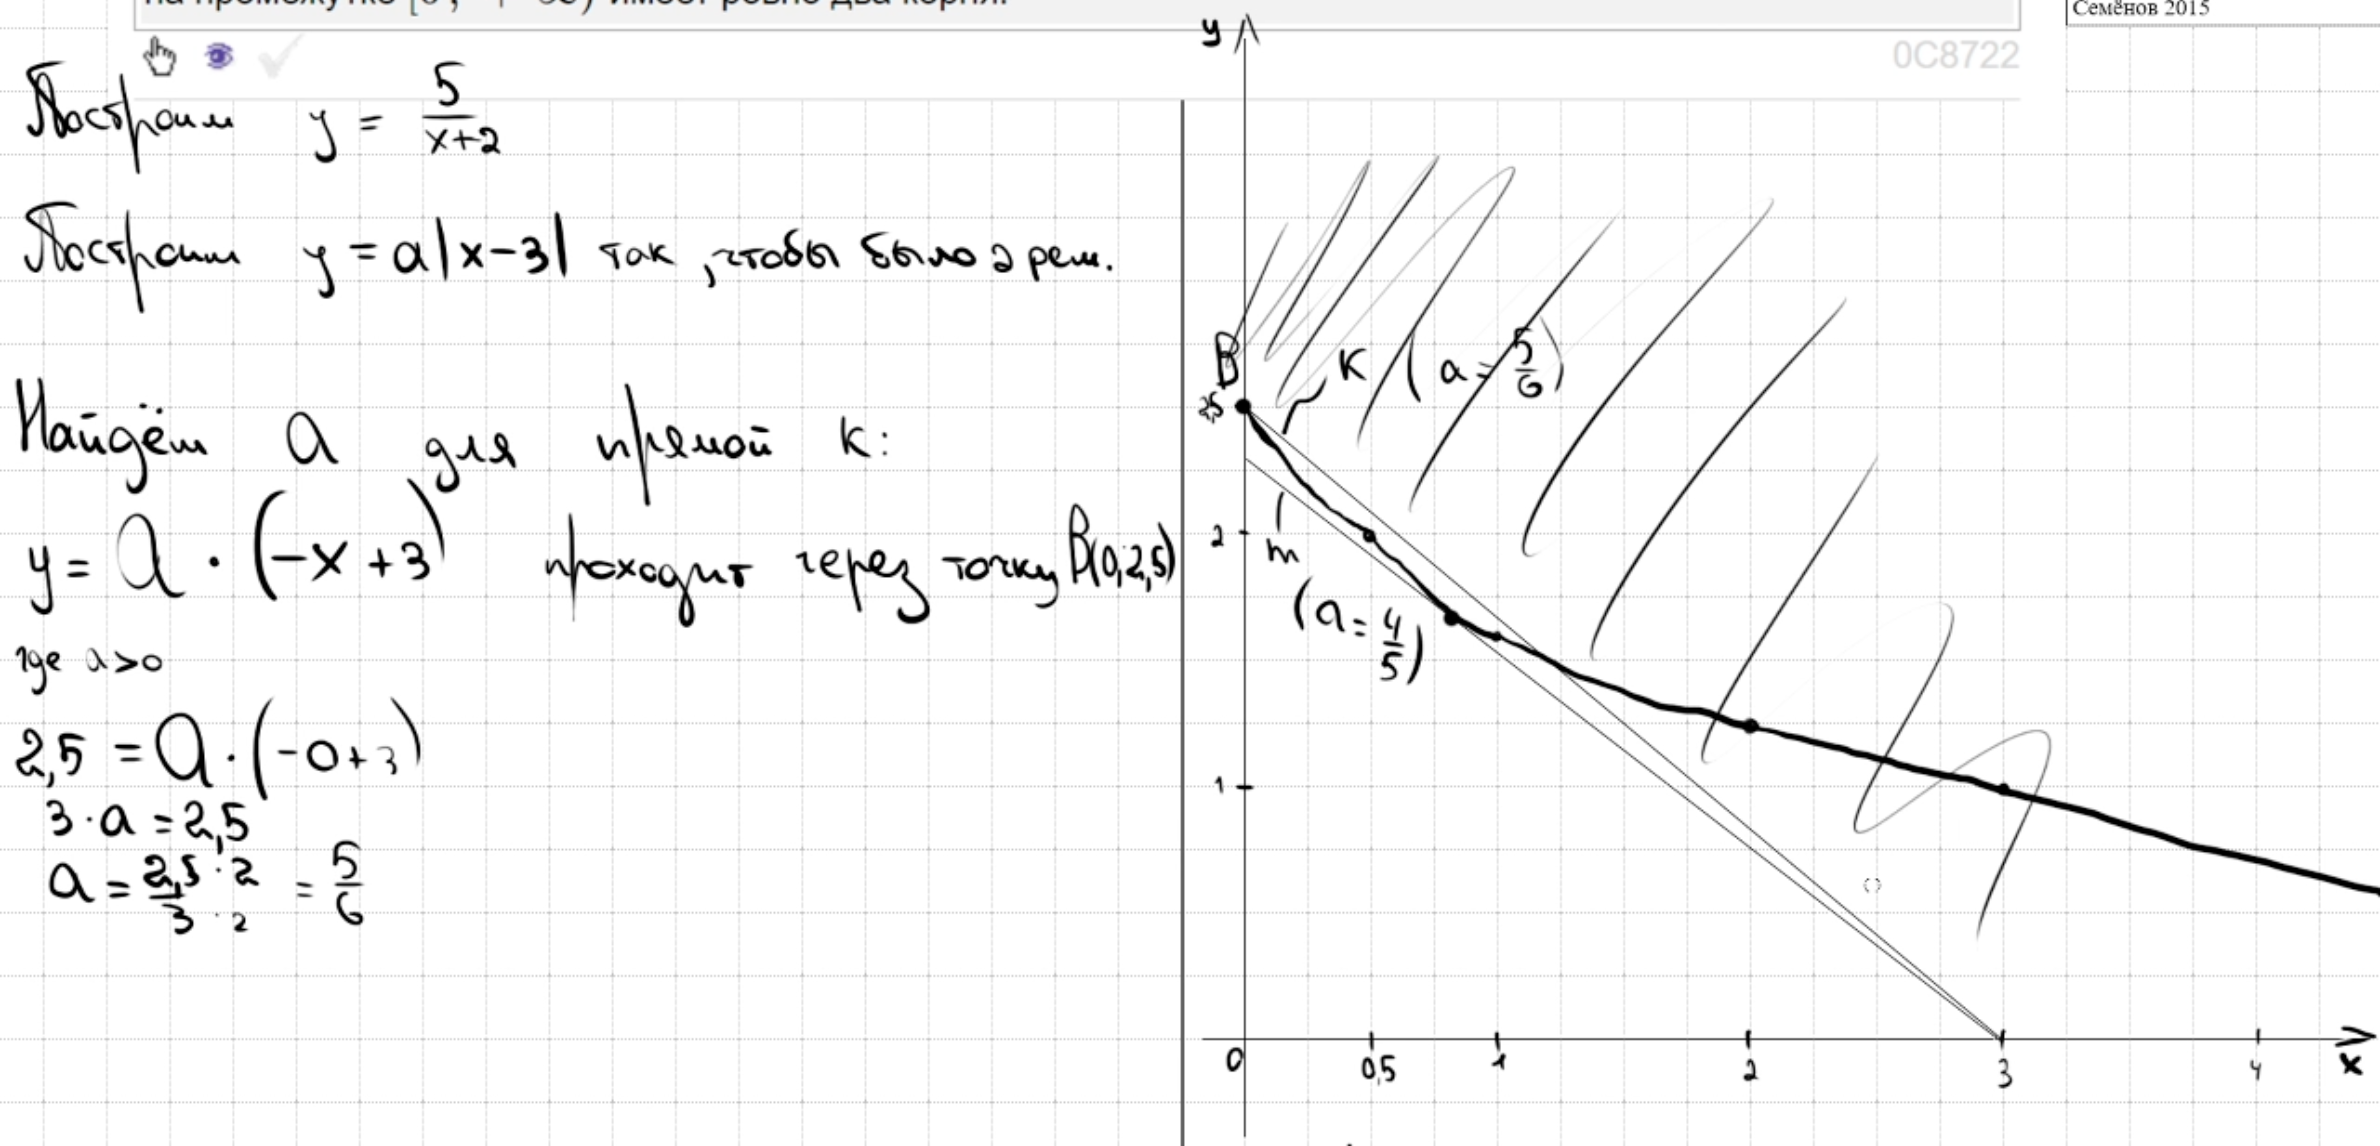 на промежутке [0; +∞) имеет ровно два корня.
Семёнов 2015
0C8722
Построим y = 5/(x+2)
Построим y = a|x-3| так, чтобы было 2 реш.
Найдём a для прямой k:
y = a · (-x+3) проходит через точку B(0; 2,5)
где a>0
2,5 = a · (-0+3)
3·a = 2,5
a = 2,5·2/3·2 = 5/6
y
B
K (a = 5/6)
2,5
2
m
(a = 4/5)
1
0 0,5 1 2 3 4 x